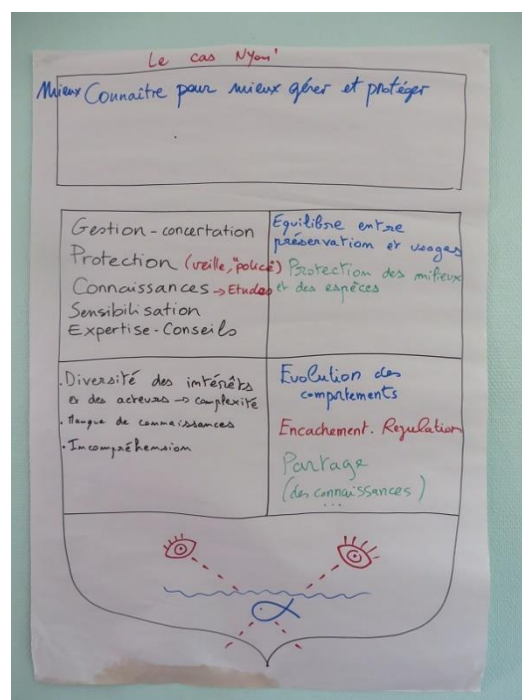 Le cas Nyons'
Mieux Connaitre pour mieux gérer et protéger
Gestion - concertation
Protection (veille, "police")
Connaissances → Etudes
Sensibilisation
Expertise - Conseils
Equilibre entre
préservation et usages
Protection des milieux
et des espèces
. Diversité des intérêts
et des acteurs → complexité
. Manque de connaissances
. Incompréhension
Evolution des
comportements
Encachement. Regulation
Partage
(des connaissances)
...